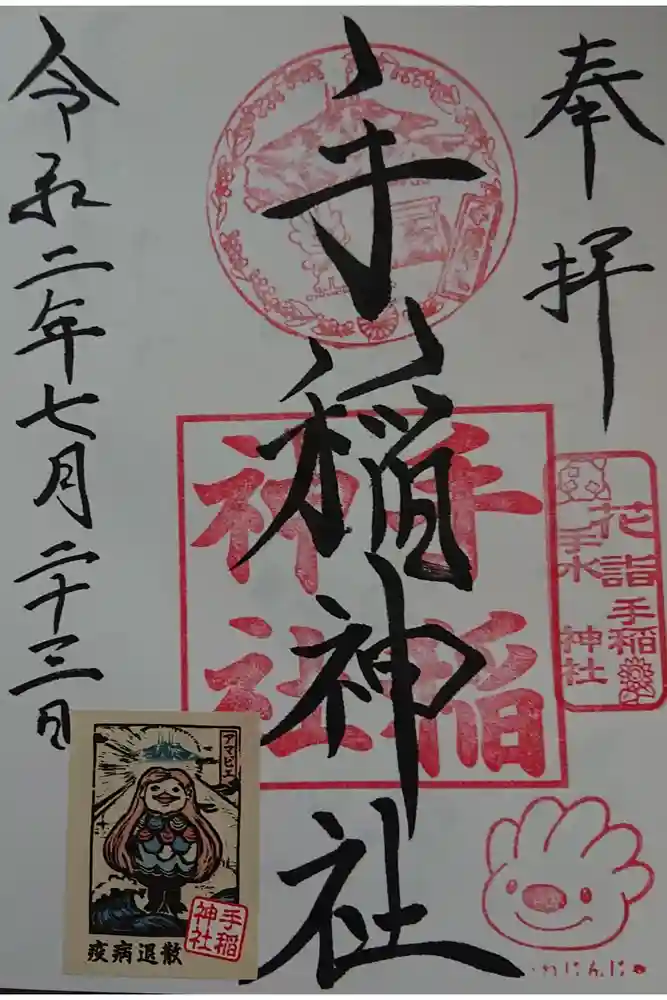 奉拝
手稲神社
令和二年七月二十三日
手稲
神社
花詣 手稲
手水 神社
アマビエ
疫病退散
手稲
神社